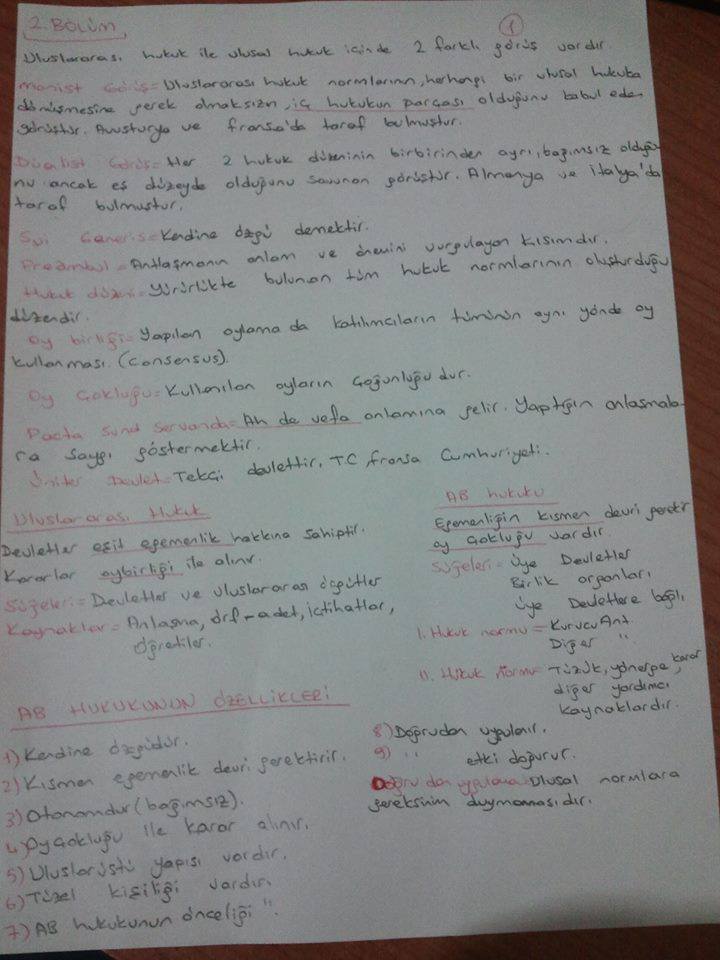 2. BÖLÜM
1
Uluslararası hukuk ile ulusal hukuk içinde 2 farklı görüş vardır.
Monist Görüş=Uluslararası hukuk normlarının, herhangi bir ulusal hukuka
dönüşmesine gerek olmaksızın, iç hukukun parçası olduğunu kabul eden
görüştür. Avusturya ve fransa'da taraf bulmuştur.
Düalist Görüş=Her 2 hukuk düzeninin birbirinden ayrı, bağımsız olduğu
nu ancak eş düzeyde olduğunu savunan görüştür. Almanya ve italya'da
taraf bulmuştur.
Sui Generis=Kendine özgü demektir.
Preambul=Antlaşmanın anlam ve önemini vurgulayan kısımdır.
Hukuk düzeni=Yürürlükte bulunan tüm hukuk normlarının oluşturduğu
düzendir.
Oy birliği=Yapılan oylama da katılımcıların tümünün aynı yönde oy
kullanması. (consensus).
Oy Çokluğu=Kullanılan oyların çoğunluğu dur.
Pacta Sund Servanda=Ah de vefa anlamına gelir. Yaptığın anlaşmala-
ra saygı göstermektir.
Üniter Devlet=Tekçi devlettir. T.C, fransa Cumhuriyeti.
Uluslararası Hukuk
Devletler eşit egemenlik hakkına sahiptir.
Kararlar oybirliği ile alınır.
Süjeleri=Devletler ve uluslararası örgütler
Kaynaklar=Anlaşma, örf-adet, içtihatlar,
öğretiler.
AB hukuku
Egemenliğin kısmen devri gerekir
oy çokluğu vardır.
Süjeleri=Üye Devletler
Birlik organları,
Üye Devletlere bağlı,
I. Hukuk normu=Kurucu Ant.
Diğer "
II. Hukuk normu=Tüzük, yönerge, karar
diğer yardımcı
kaynaklardır.
AB HUKUKUNUN ÖZELLİKLERİ
1) Kendine özgüdür.
2) Kısmen egemenlik devri gerektirir.
3) Otonomdur (bağımsız).
4) Oy çokluğu ile karar alınır.
5) Uluslarüstü yapısı vardır.
6) Tüzel kişiliği vardır.
7) AB hukukunun önceliği ".
8) Doğrudan uygulanır.
9) " etki doğurur.
Doğrudan uygulama=Ulusal normlara
gereksinim duymamasıdır.